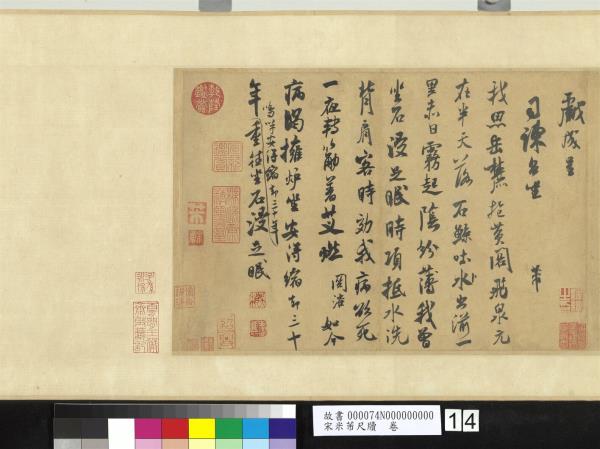 戲成呈
司諫台坐　芾
我思岳麓抱黃閣飛泉元
在半天落石鯨吐水出湔一
里赤日霧起陰紛薄我曾
坐石浸足眠時項抵水洗
背肩客時效我病欲死
一夜轉筋著艾燃 如今
病渴擁爐坐安得縮卻三十
嗚呼安得縮卻三十年
年重往坐石浸足眠
故書 000074N000000000
宋米芾尺牘 卷
14